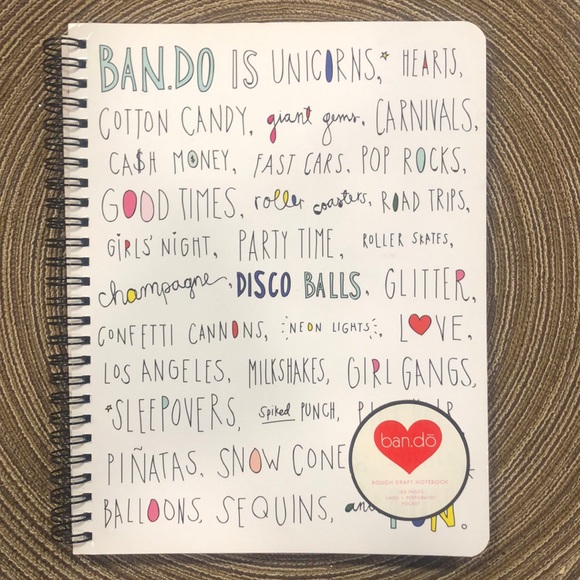 BAN.DO IS UNICORNS, HEARTS,
COTTON CANDY, giant gems, CARNIVALS,
CA$H MONEY, FAST CARS, POP ROCKS,
GOOD TIMES, roller coasters, ROAD TRIPS,
GIRLS' NIGHT, PARTY TIME, ROLLER SKATES,
champagne, DISCO BALLS, GLITTER,
CONFETTI CANNONS, NEON LIGHTS, LOVE,
LOS ANGELES, MILKSHAKES, GIRL GANGS,
SLEEPOVERS, spiked PUNCH,
PIÑATAS, SNOW CONE
BALLOONS, SEQUINS, and FUN.
ban.dō
ROUGH DRAFT NOTEBOOK